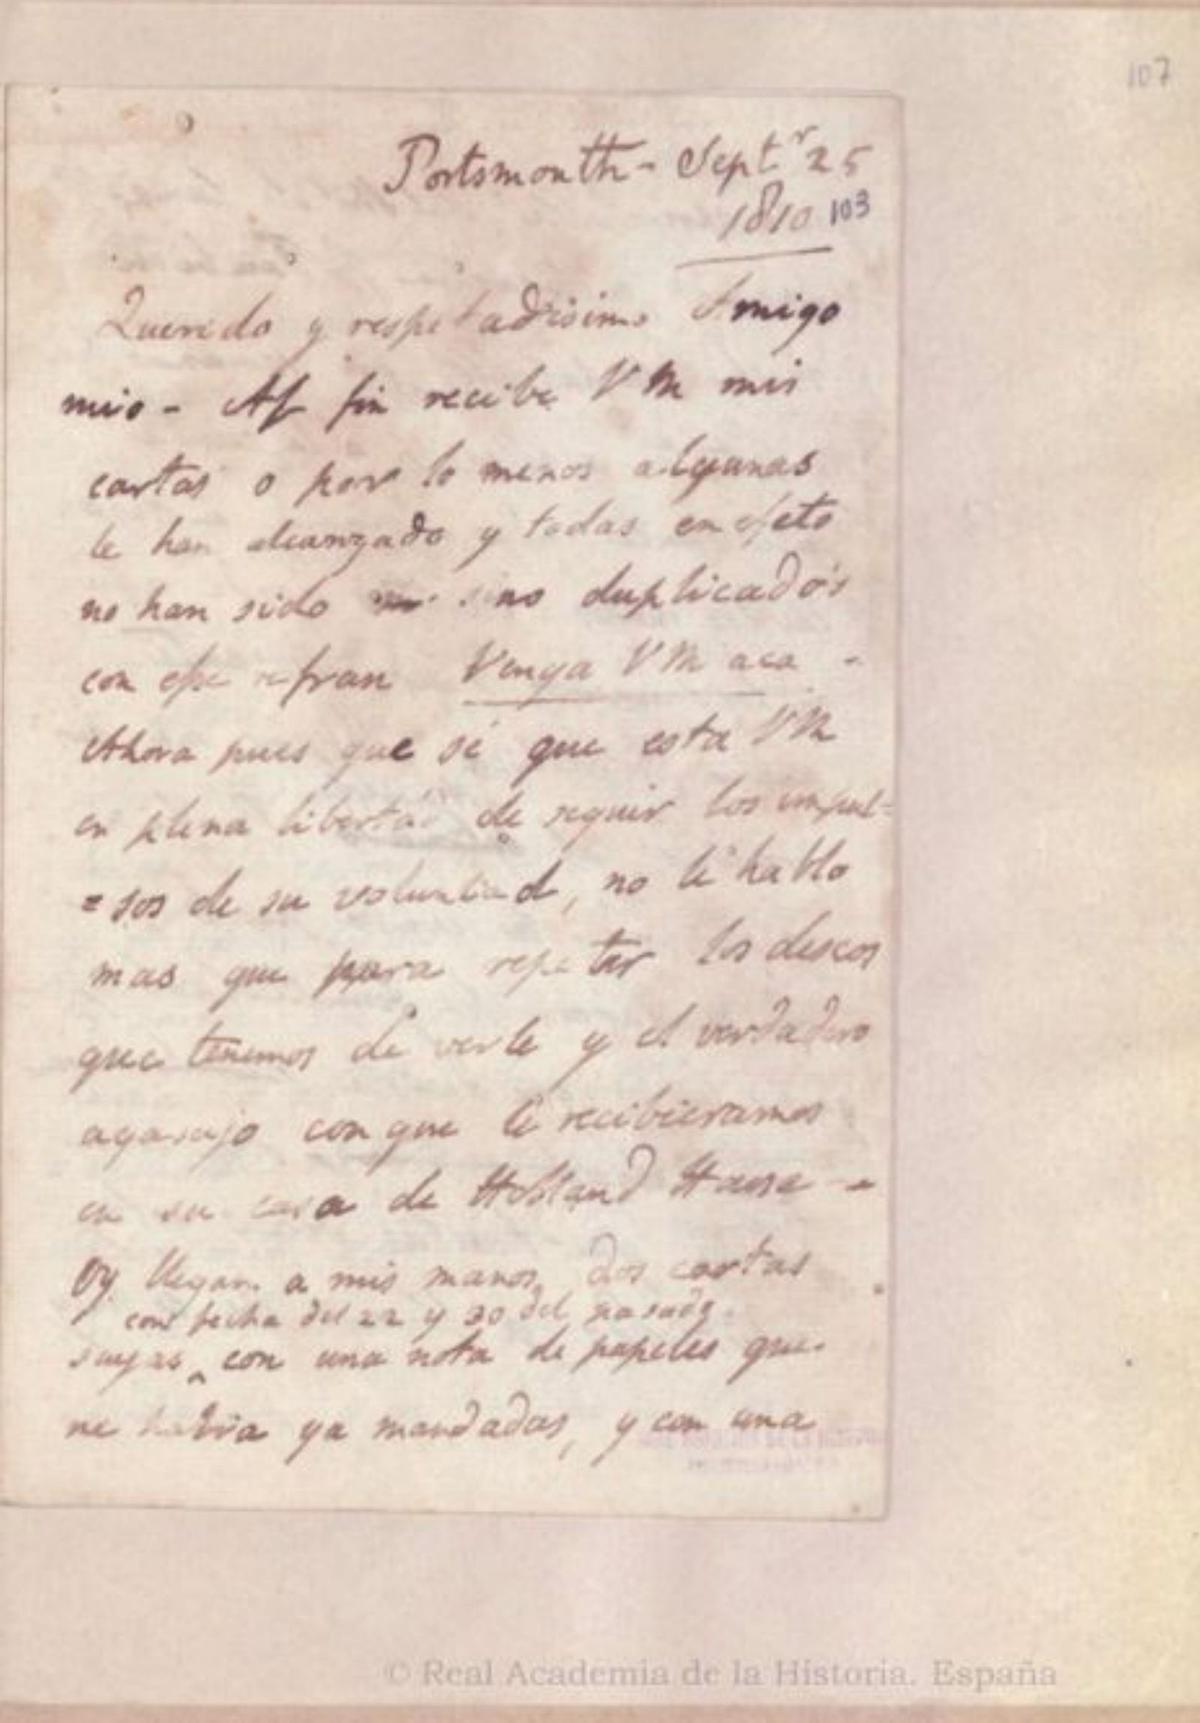 107
Portsmouth - Septr 25
1810 103
Querido y respetadisimo Amigo
mio - Al fin recibe VM mis
cartas o por lo menos algunas
le han alcanzado y todas en efeto
no han sido sino duplicados
con ese refran Venga VM aca -
Ahora pues que sé que esta VM
en plena libertad de seguir los impul-
=sos de su voluntad, no le hablo
mas que para repetir los deseos
que tenemos de verle y el verdadero
agasajo con que le recibieramos
en su casa de Holland House -
Oy llegan a mis manos dos cartas
con fecha del 22 y 30 del pasado
suyas ^ con una nota de papeles que
me habia ya mandadas, y con una
© Real Academia de la Historia. España